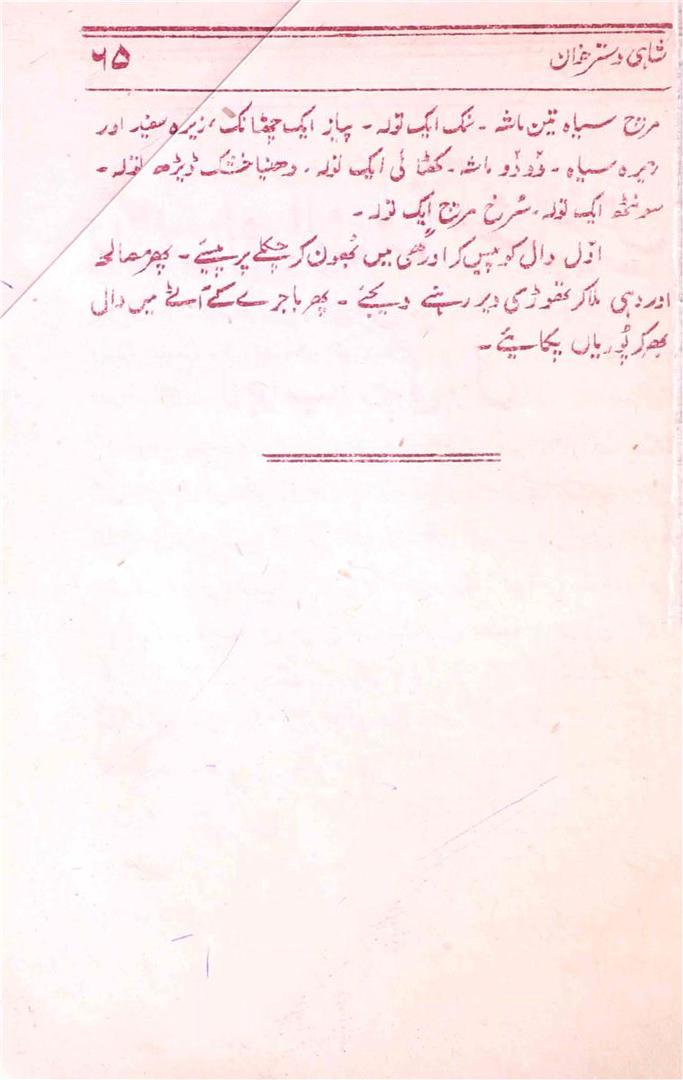 شاہی دسترخوان ۶۵
مرچ سیاہ تین ماشہ ۔ نمک ایک تولہ ۔ پیاز ایک چھٹانک، زیرہ سفید اور
زیرہ سیاہ ۔ دو دو ماشہ ۔ کھٹائی ایک تولہ ۔ دھنیا خشک ڈیڑھ تولہ ۔
سونٹھ ایک تولہ، سُرخ مرچ ایک تولہ ۔
اوّل دال کو پیس کر اور گھی میں بُھون کر چکلے پر پیسئے ۔ پھر مصالحہ
اور دہی ملا کر تھوڑی دیر رہنے دیجئے ۔ پھر باجرے کے آٹے میں دال
بھر کر پُوریاں پکایئے ۔